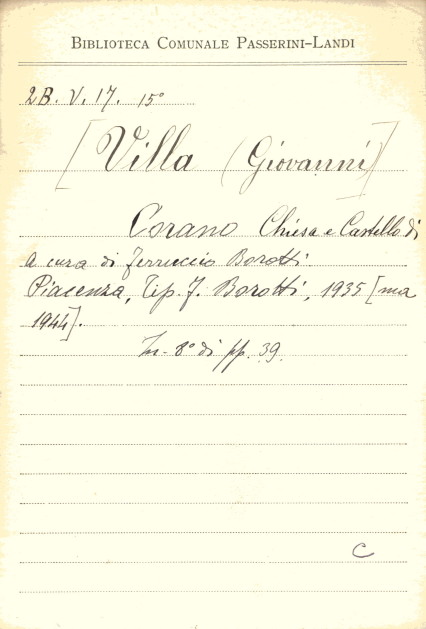 BIBLIOTECA COMUNALE PASSERINI-LANDI
2B. V. 17. 15°
[Villa (Giovanni)]
Corano Chiesa e Castello di
a cura di Ferruccio Borotti
Piacenza, Tip. F. Borotti, 1935 [ma
1944].
In-8° di pp. 39.
C